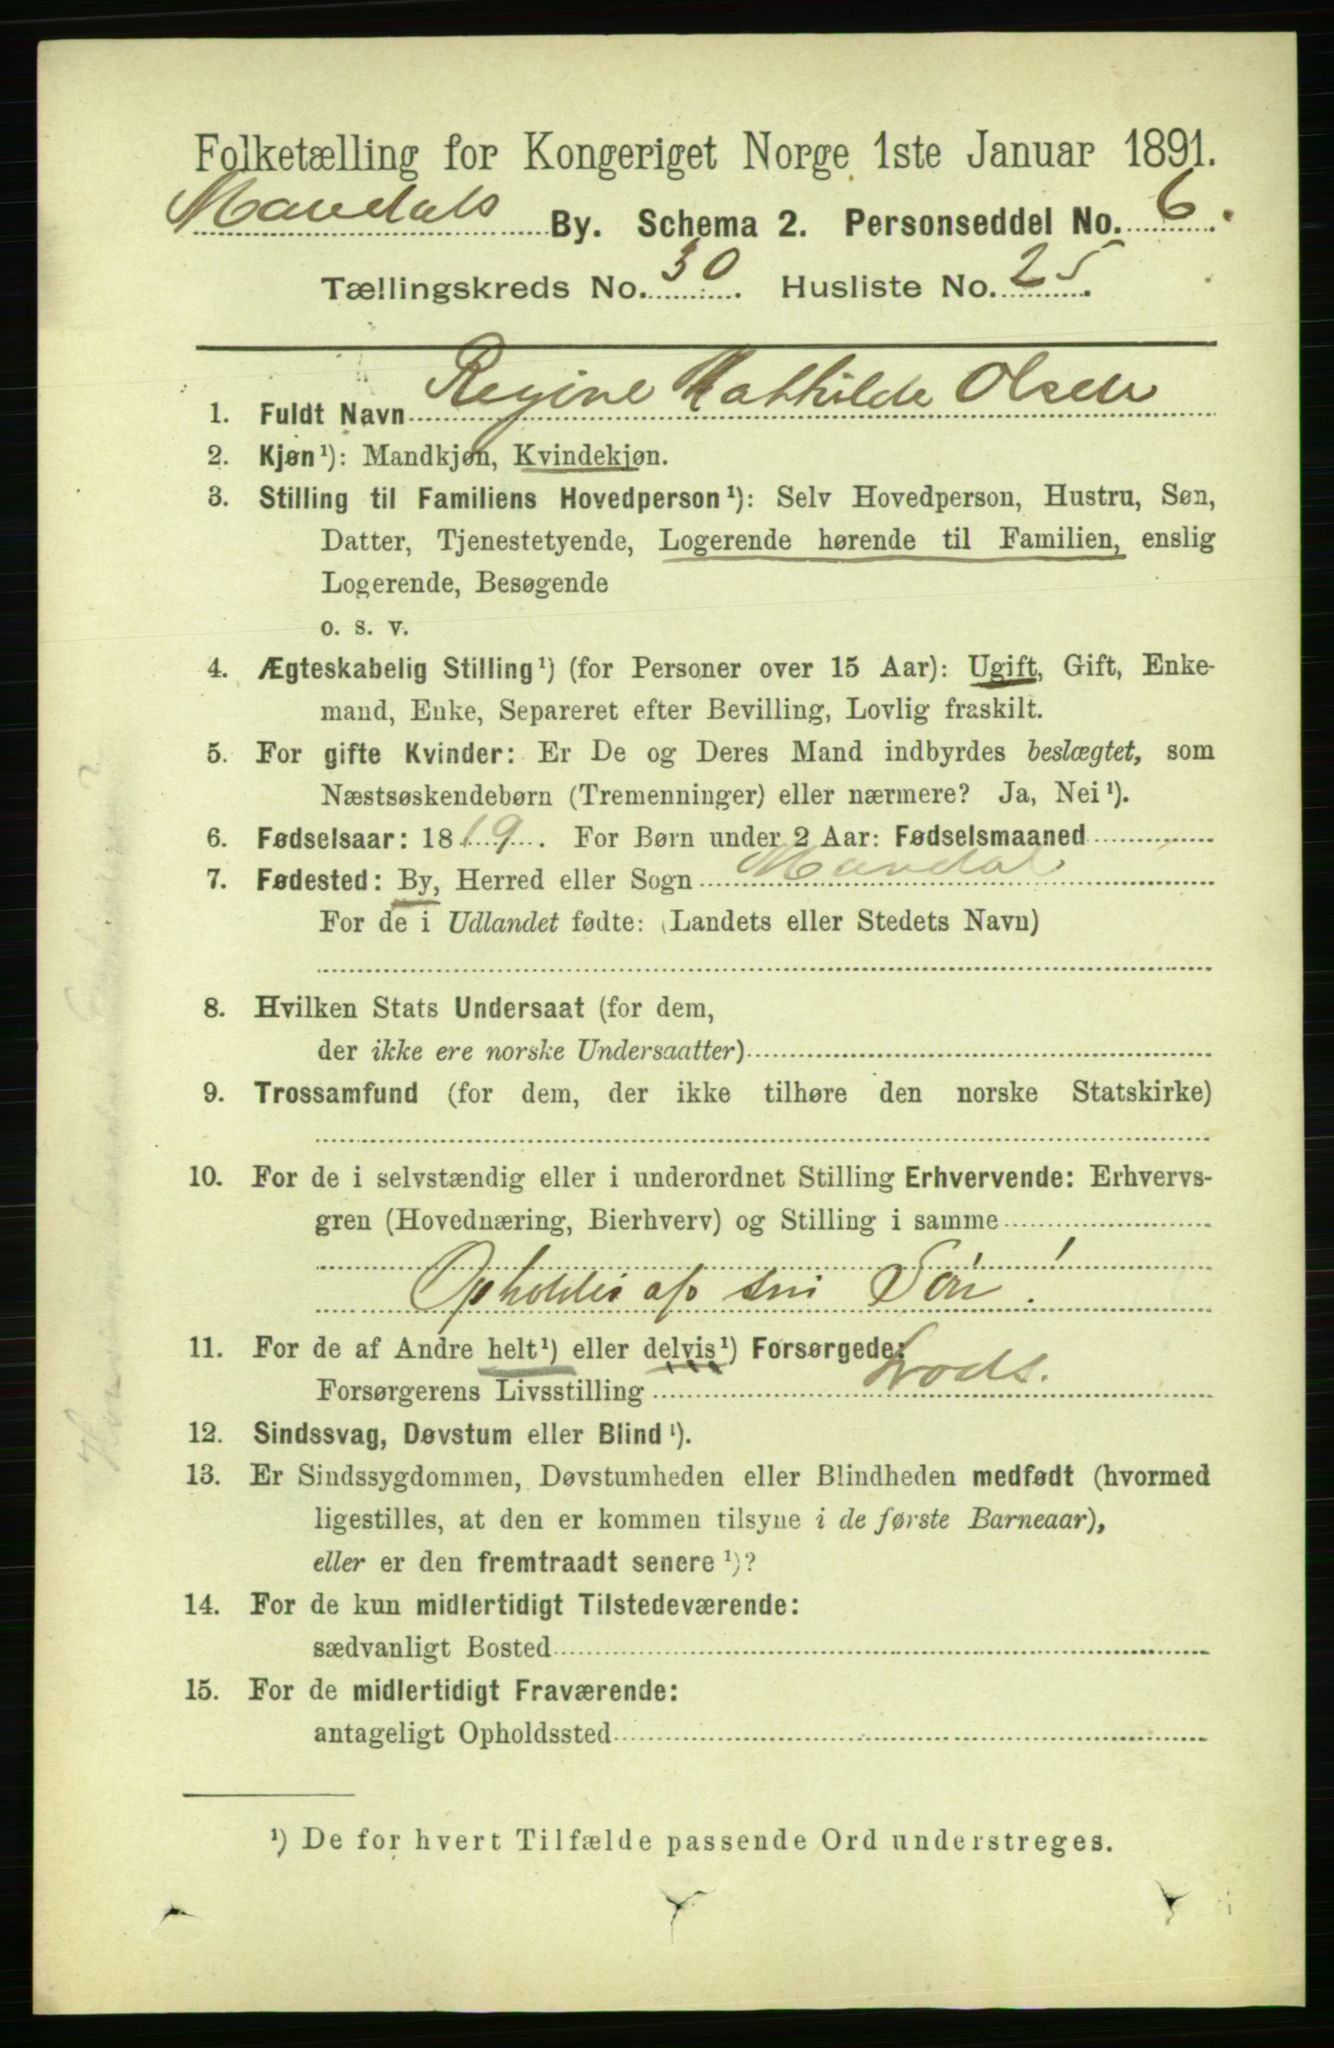 Folketælling for Kongeriget Norge 1ste Januar 1891.
Mandals By. Schema 2. Personseddel No. 6.
Tællingskreds No. 30. Husliste No. 25.
1. Fuldt Navn Regine Mathilde Olsen
2. Kjøn¹): Mandkjøn, Kvindekjøn.
3. Stilling til Familiens Hovedperson¹): Selv Hovedperson, Hustru, Søn,
Datter, Tjenestetyende, Logerende hørende til Familien, enslig
Logerende, Besøgende
o. s. v.
4. Ægteskabelig Stilling¹) (for Personer over 15 Aar): Ugift, Gift, Enke-
mand, Enke, Separeret efter Bevilling, Lovlig fraskilt.
5. For gifte Kvinder: Er De og Deres Mand indbyrdes beslægtet, som
Næstsøskendebørn (Tremenninger) eller nærmere? Ja, Nei¹).
6. Fødselsaar: 1819. For Børn under 2 Aar: Fødselsmaaned
7. Fødested: By, Herred eller Sogn Mandal
For de i Udlandet fødte: (Landets eller Stedets Navn)
8. Hvilken Stats Undersaat (for dem,
der ikke ere norske Undersaatter)
9. Trossamfund (for dem, der ikke tilhøre den norske Statskirke)
10. For de i selvstændig eller i underordnet Stilling Erhvervende: Erhvervs-
gren (Hovednæring, Bierhverv) og Stilling i samme
Opholdes af sin Søn!
11. For de af Andre helt¹) eller delvis¹) Forsørgede:
Forsørgerens Livsstilling Lods.
12. Sindssvag, Døvstum eller Blind¹).
13. Er Sindssygdommen, Døvstumheden eller Blindheden medfødt (hvormed
ligestilles, at den er kommen tilsyne i de første Barneaar),
eller er den fremtraadt senere¹)?
14. For de kun midlertidigt Tilstedeværende:
sædvanligt Bosted
15. For de midlertidigt Fraværende:
antageligt Opholdssted
¹) De for hvert Tilfælde passende Ord understreges.